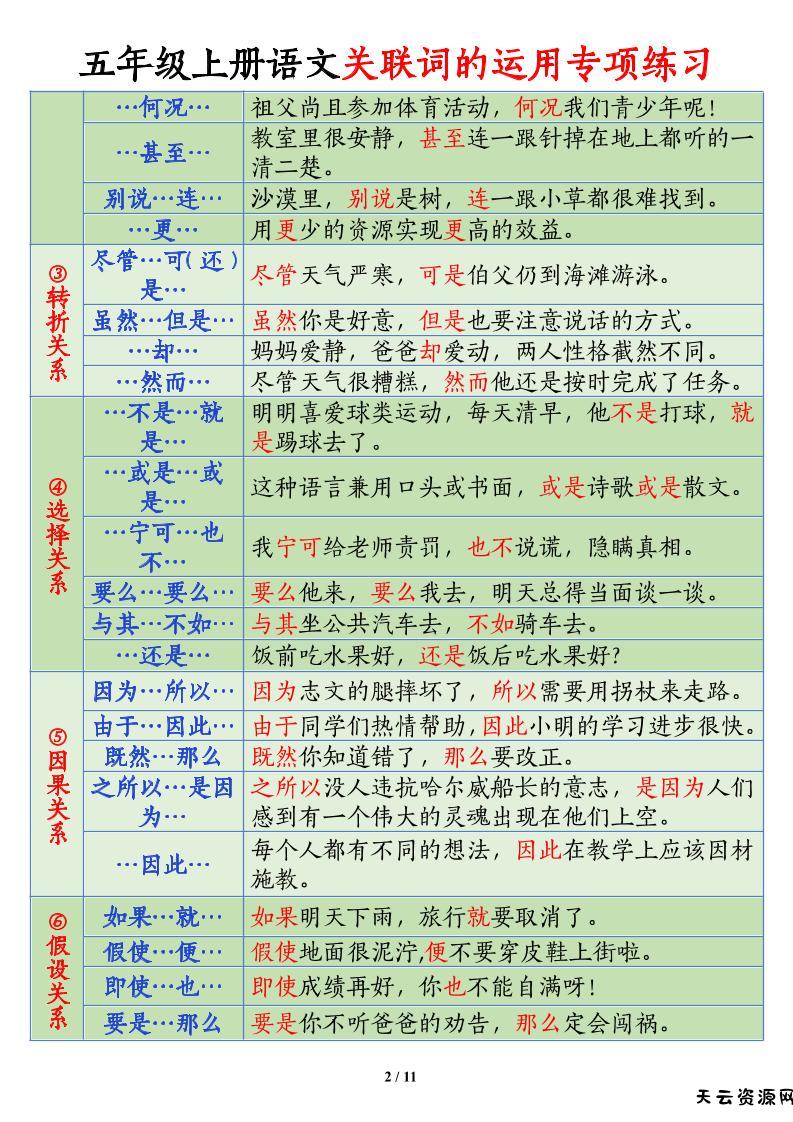 五年级上册语文关联词的运用专项练习
…何况…
祖父尚且参加体育活动，何况我们青少年呢！
…甚至…
教室里很安静，甚至连一跟针掉在地上都听的一
清二楚。
别说…连…
沙漠里，别说是树，连一跟小草都很难找到。
…更…
用更少的资源实现更高的效益。
③转折关系
尽管…可（还）
是…
尽管天气严寒，可是伯父仍到海滩游泳。
虽然…但是…
虽然你是好意，但是也要注意说话的方式。
…却…
妈妈爱静，爸爸却爱动，两人性格截然不同。
…然而…
尽管天气很糟糕，然而他还是按时完成了任务。
④选择关系
…不是…就
是…
明明喜爱球类运动，每天清早，他不是打球，就
是踢球去了。
…或是…或
是…
这种语言兼用口头或书面，或是诗歌或是散文。
…宁可…也
不…
我宁可给老师责罚，也不说谎，隐瞒真相。
要么…要么…
要么他来，要么我去，明天总得当面谈一谈。
与其…不如…
与其坐公共汽车去，不如骑车去。
…还是…
饭前吃水果好，还是饭后吃水果好？
⑤因果关系
因为…所以…
因为志文的腿摔坏了，所以需要用拐杖来走路。
由于…因此…
由于同学们热情帮助，因此小明的学习进步很快。
既然…那么
既然你知道错了，那么要改正。
之所以…是因
为…
之所以没人违抗哈尔威船长的意志，是因为人们
感到有一个伟大的灵魂出现在他们上空。
…因此…
每个人都有不同的想法，因此在教学上应该因材
施教。
⑥假设关系
如果…就…
如果明天下雨，旅行就要取消了。
假使…便…
假使地面很泥泞,便不要穿皮鞋上街啦。
即使…也…
即使成绩再好，你也不能自满呀！
要是…那么
要是你不听爸爸的劝告，那么定会闯祸。
2 / 11
天云资源网